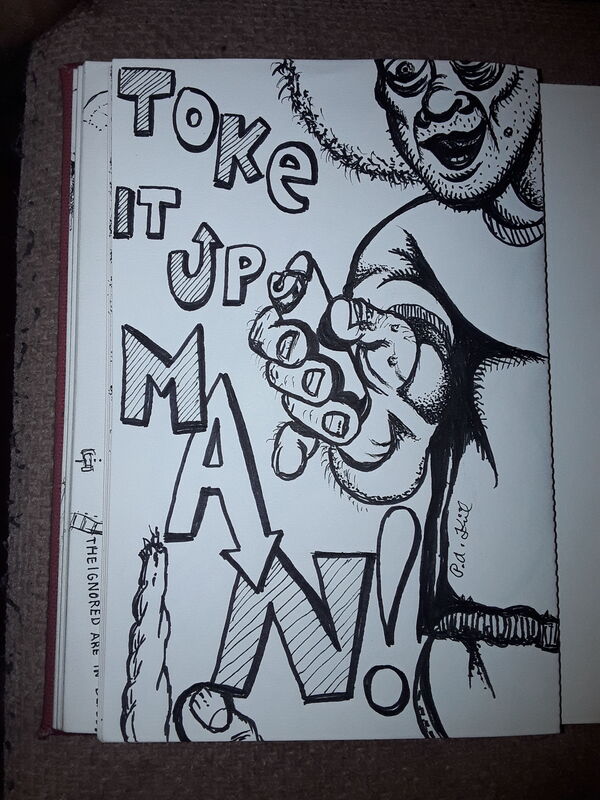 TOKE
IT UP
MAN!
THE IGNORED ARE IN